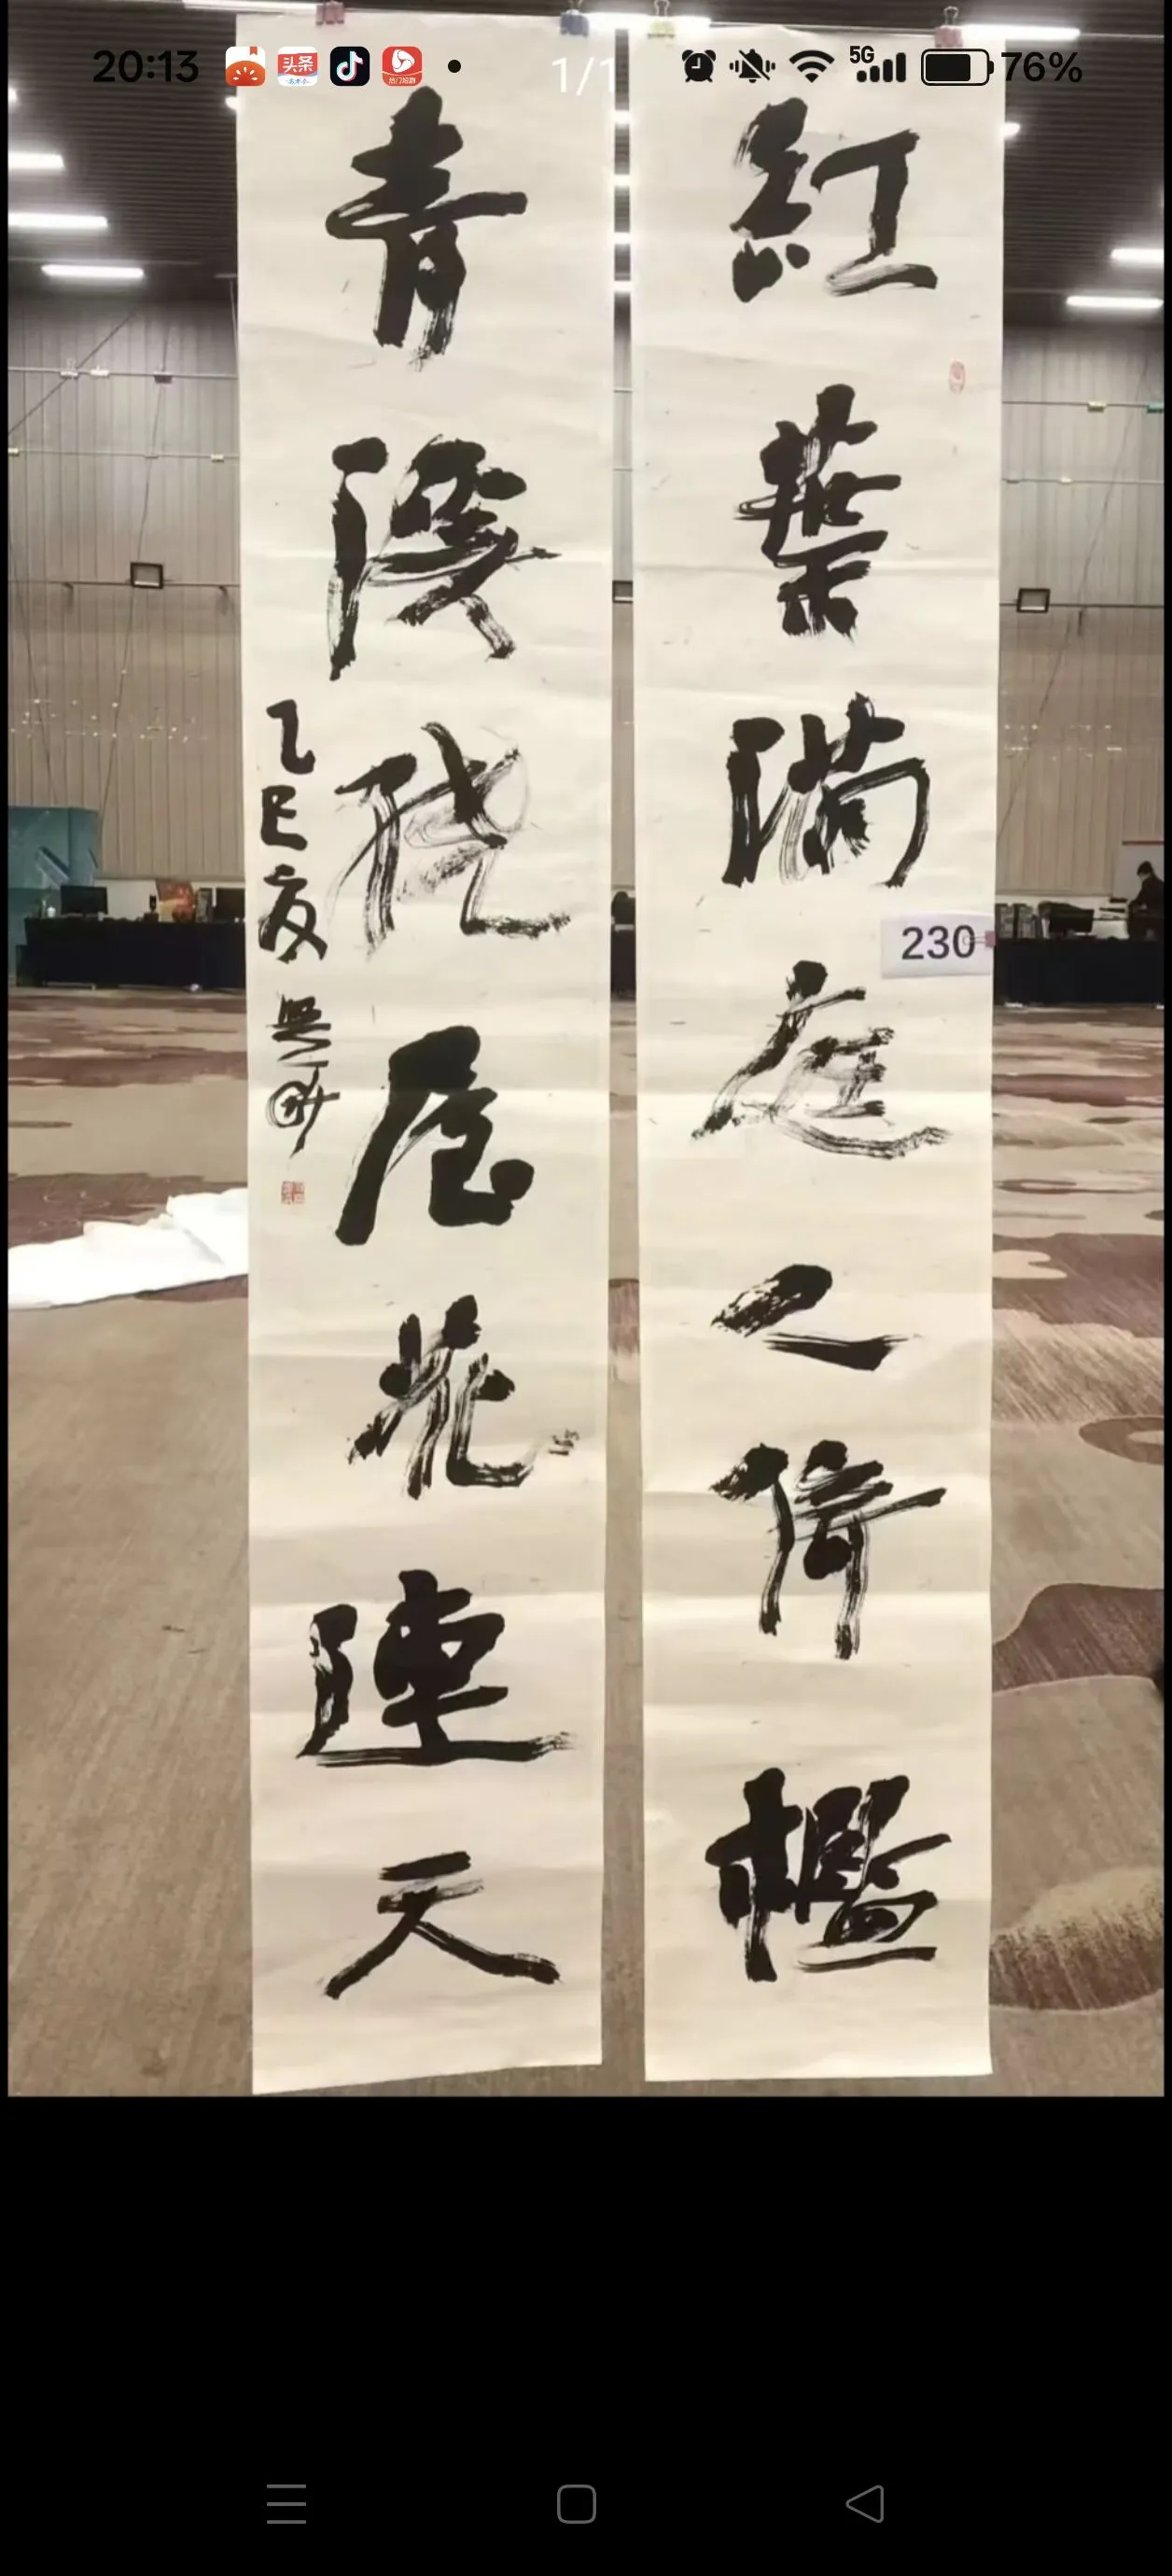 20:13
头条
1/1
5G
76%
紅葉滿庭人倚檻
230
青溪繞屋花連天
乙巳夏